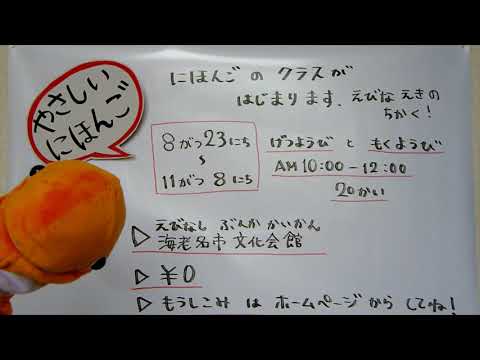 やさしい
にほんご
にほんご の クラス が
はじまり ます、えびな えきの
ちかく!
8がつ23にち
~
11がつ 8にち
げつようび と もくようび
AM 10:00-12:00
20かい
えびなし ぶんか かいかん
▷ 海老名市 文化会館
▷ ¥0
▷ もうしこみ は ホームページ から してね!